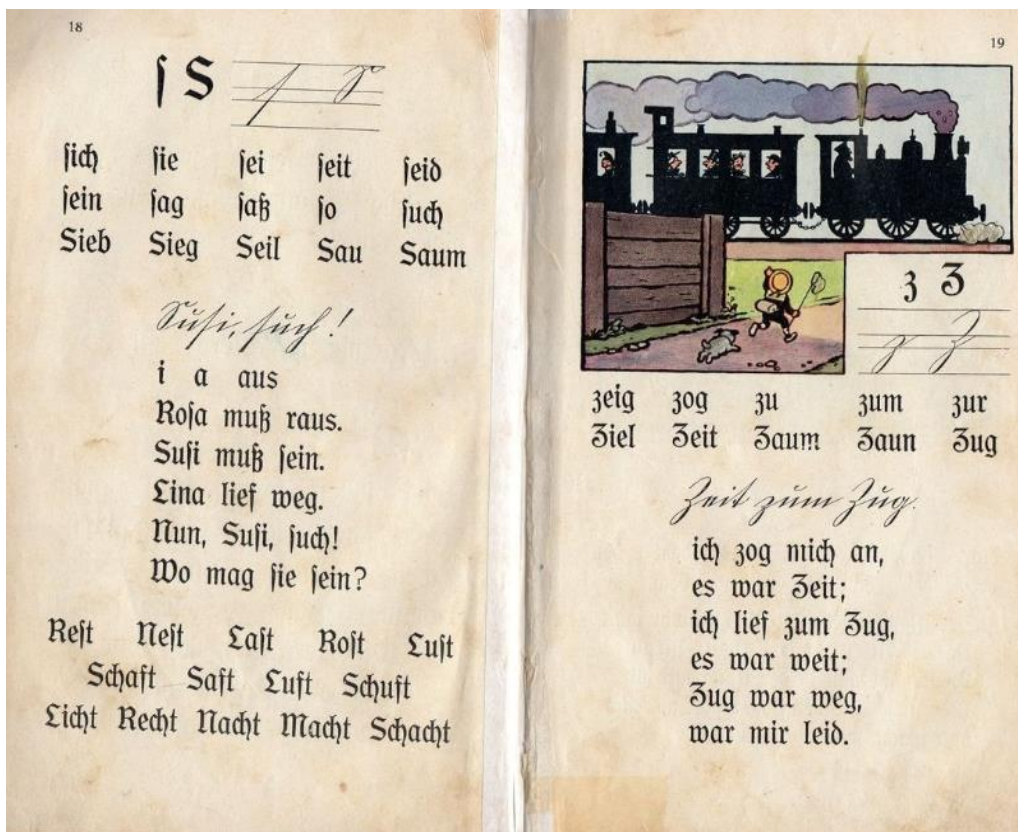 18
ſ S ſ S
ſich ſie ſei ſeit ſeid
ſein ſag ſaß ſo ſuch
Sieb Sieg Seil Sau Saum
Suſi, ſuch!
i a aus
Roſa muß raus.
Suſi muß ſein.
Lina lief weg.
Nun, Suſi, ſuch!
Wo mag ſie ſein?
Reſt Neſt Laſt Roſt Luſt
Schaft Saft Luft Schuft
Licht Recht Nacht Macht Schacht
19
z Z
z Z
zeig zog zu zum zur
Ziel Zeit Zaum Zaun Zug
Zeit zum Zug.
ich zog mich an,
es war Zeit;
ich lief zum Zug,
es war weit;
Zug war weg,
war mir leid.